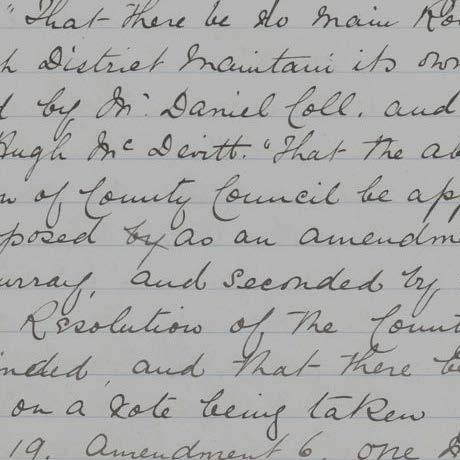 "That there be no main Ro
h District maintain its own
d by Mr. Daniel Coll. and
Hugh Mc Devitt. "That the ab
n of County Council be app
posed by as an amendme
urray, and seconded by
Resolution of the Count
inded, and that there be
on a vote being taken
19. Amendment 6. one